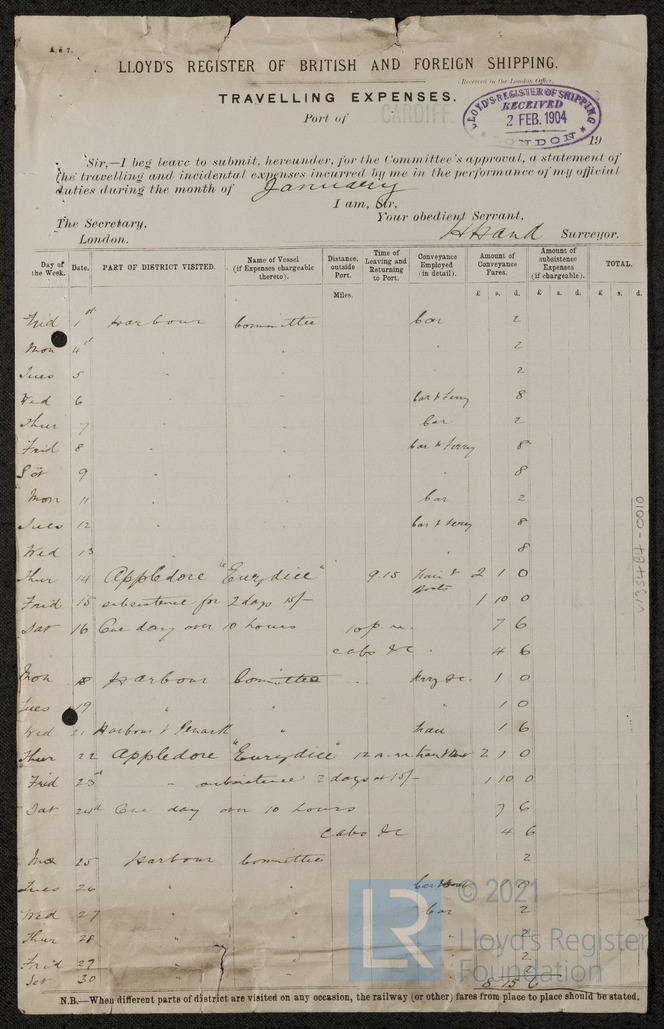 LLOYD'S REGISTER OF BRITISH AND FOREIGN SHIPPING.
(Received in the London Office,
TRAVELLING EXPENSES.
Port of CARDIFF
LLOYD'S REGISTER OF SHIPPING
RECEIVED
2 FEB. 1904
LONDON
19
Sir,—I beg leave to submit, hereunder, for the Committee's approval, a statement of
the travelling and incidental expenses incurred by me in the performance of my official
duties during the month of January
I am, Sir,
The Secretary, Your obedient Servant,
London. H Hand Surveyor.
Day of the Week. Date. PART OF DISTRICT VISITED. Name of Vessel (if Expenses chargeable thereto). Distance, outside Port. Time of Leaving and Returning to Port. Conveyance Employed (in detail). Amount of Conveyance Fares. Amount of subsistence Expenses (if chargeable). TOTAL.
Miles. £ s. d. £ s. d. £ s. d.
Frid 1st Harbour Committee Car 2
Mon 4 " " " 2
Tues 5 " " 2
Wed 6 " " Car & ferry 8
Thur 7 " " Car 2
Frid 8 " " Car & Ferry 8
Sat 9 " " 8
Mon 11 " " Car 2
Tues 12 " " Car & ferry 8
Wed 13 " " 8
Thur 14 Appledore "Eurydice" 9.15 train & Boats 2 1 0
Frid 15 subsistence for 2 days 15/- 1 10 0
Sat 16 One day over 10 hours 10 p.m. 7 6
cabs &c 4 6
Mon 18 Harbour Committee ferry &c. 1 0
Tues 19 " " 1 0
Wed 21 Harbour & Penarth " train 1 6
Thur 22 Appledore "Eurydice" 12 a.m. train & Boat 2 1 0
Frid 23rd " subsistence 2 days at 15/- 1 10 0
Sat 24th One day over 10 hours 7 6
cabs &c 4 6
Mon 25 Harbour Committee 2
Tues 26 " " Car & Boat
Wed 27 " " Car 2
Thur 28 " " 2
Frid 29 " " 2
Sat 30 " "
8 15 6
N.B.—When different parts of district are visited on any occasion, the railway (or other) fares from place to place should be stated.
LR
© 2021
Lloyd's Register
Foundation